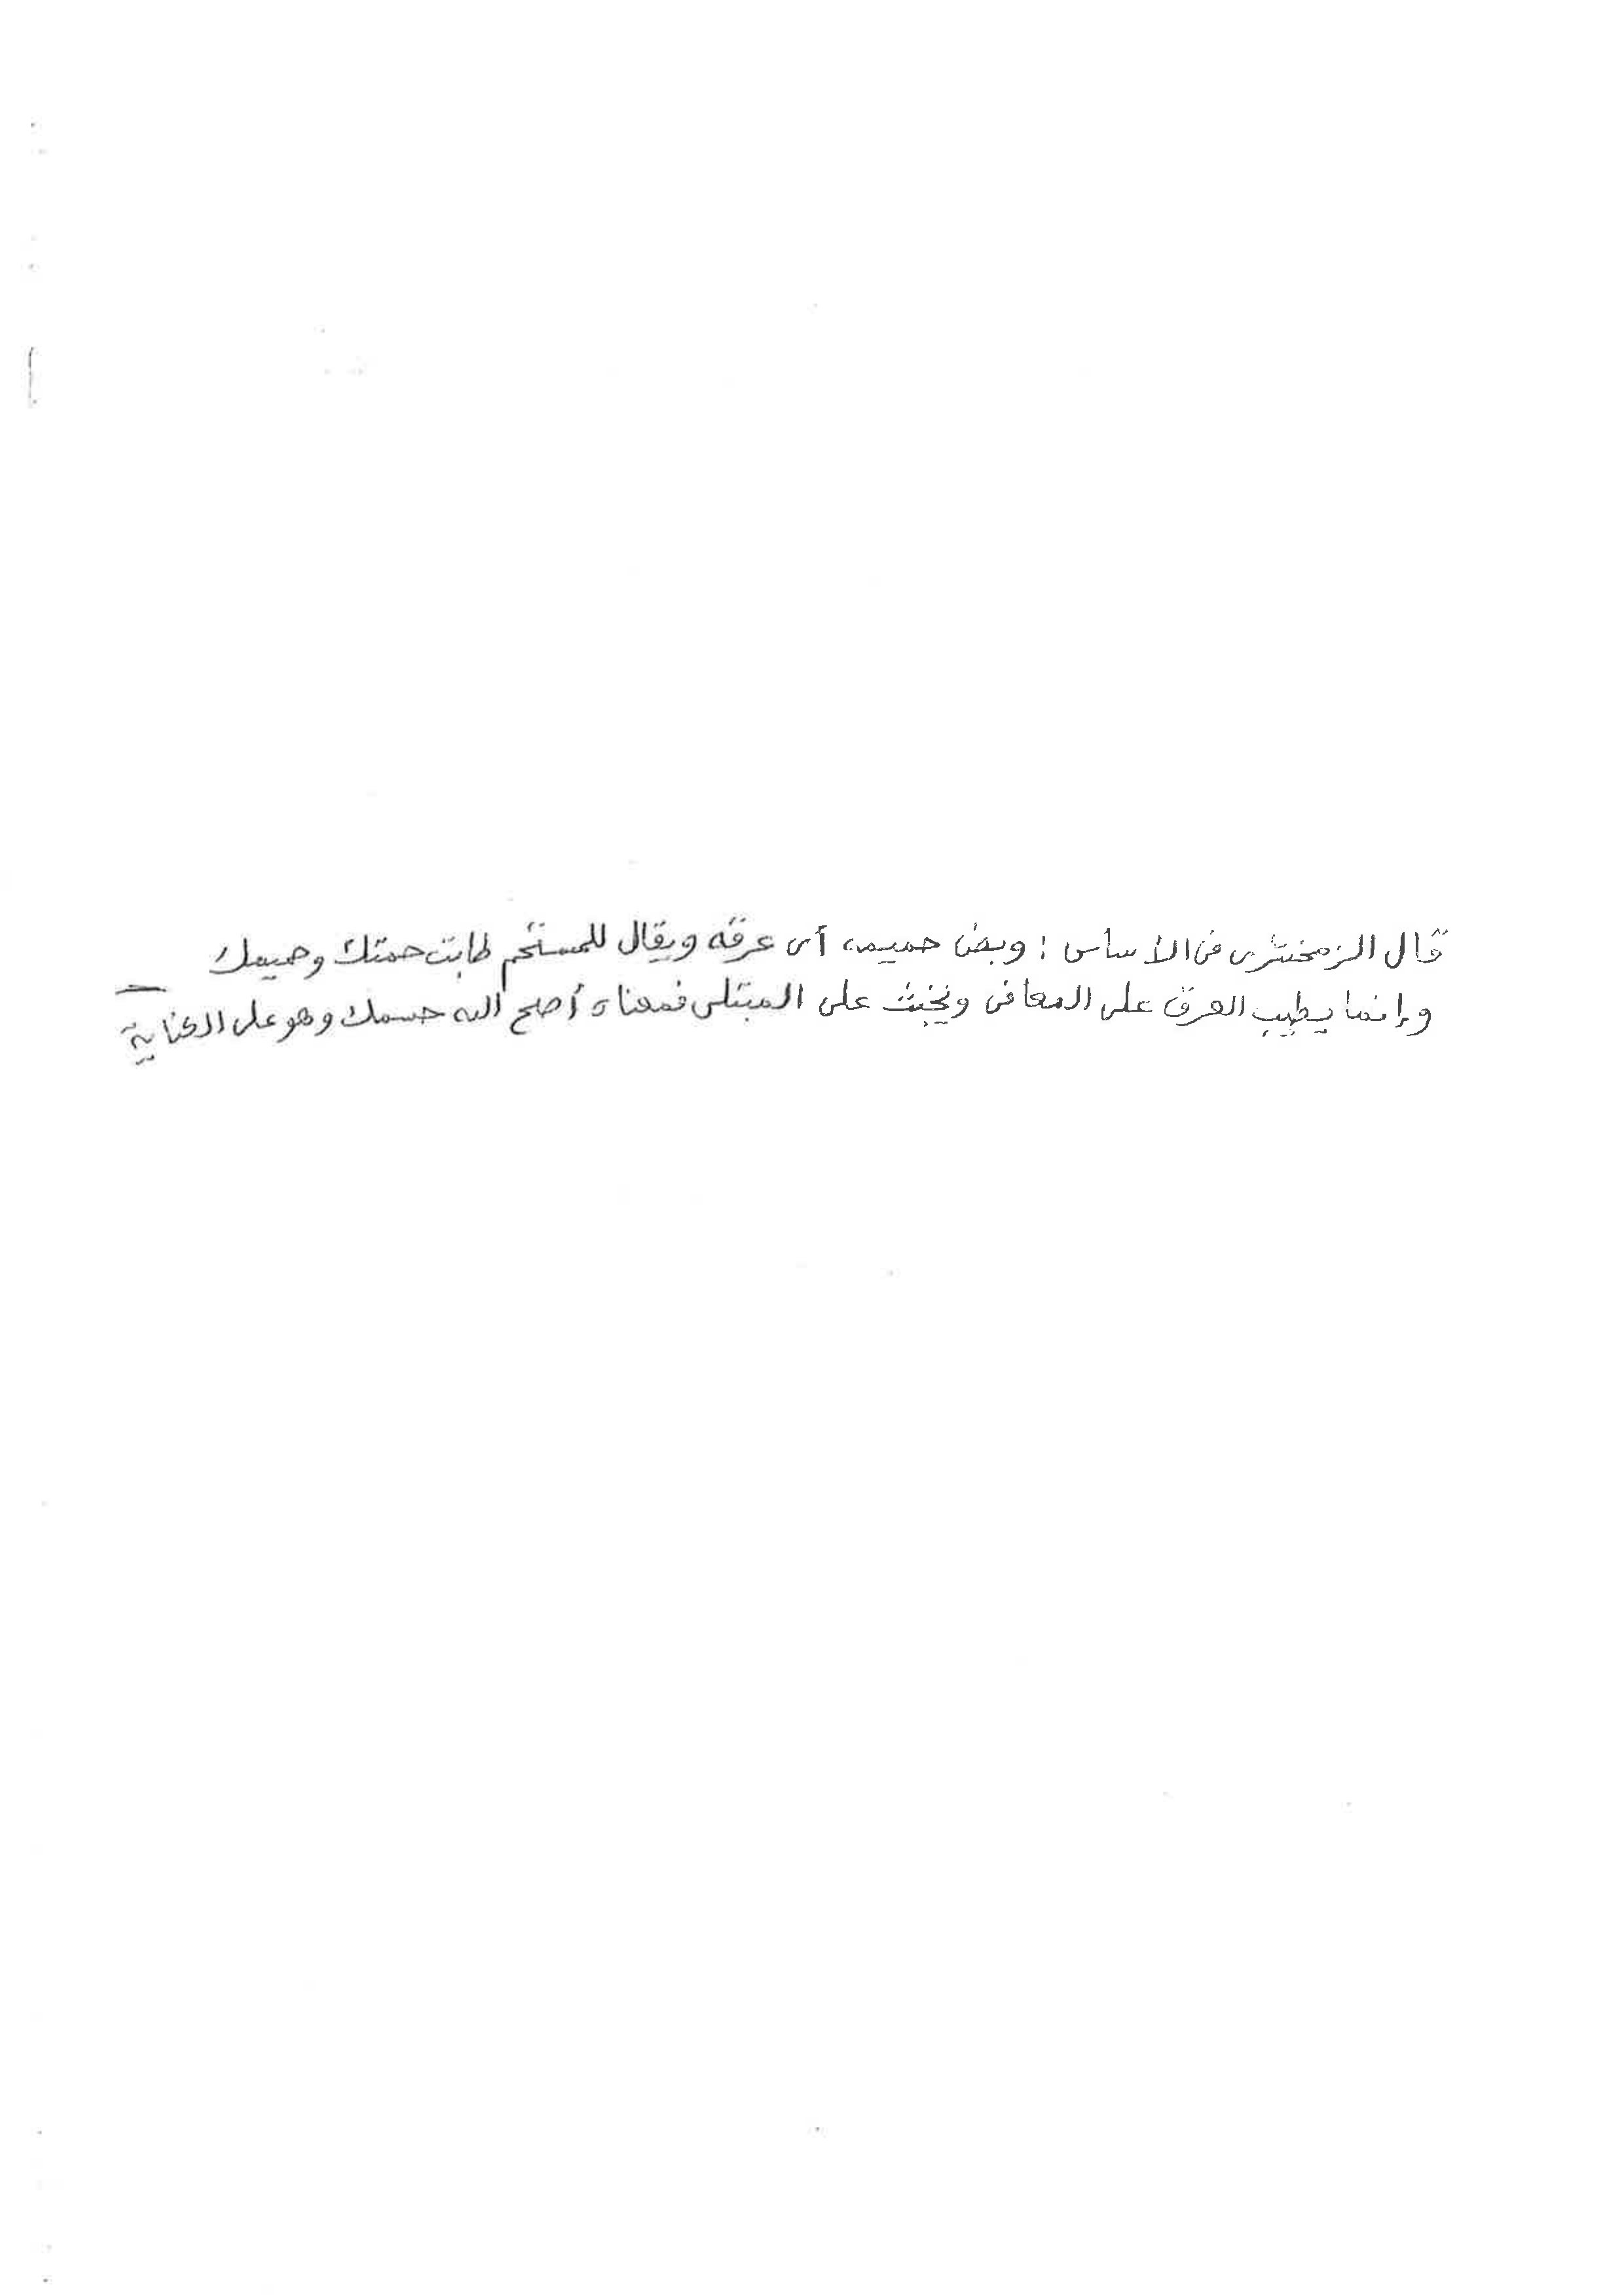 قال الزمخشرى فى الأساس : وبض حميمه أى عرقه ويقال للمستحم طابت حمتك وحميمك
وإنما يطيب العرق على المعافى ويخبث على المبتلى فمعناه أصح الله جسمك وهو على الكناية